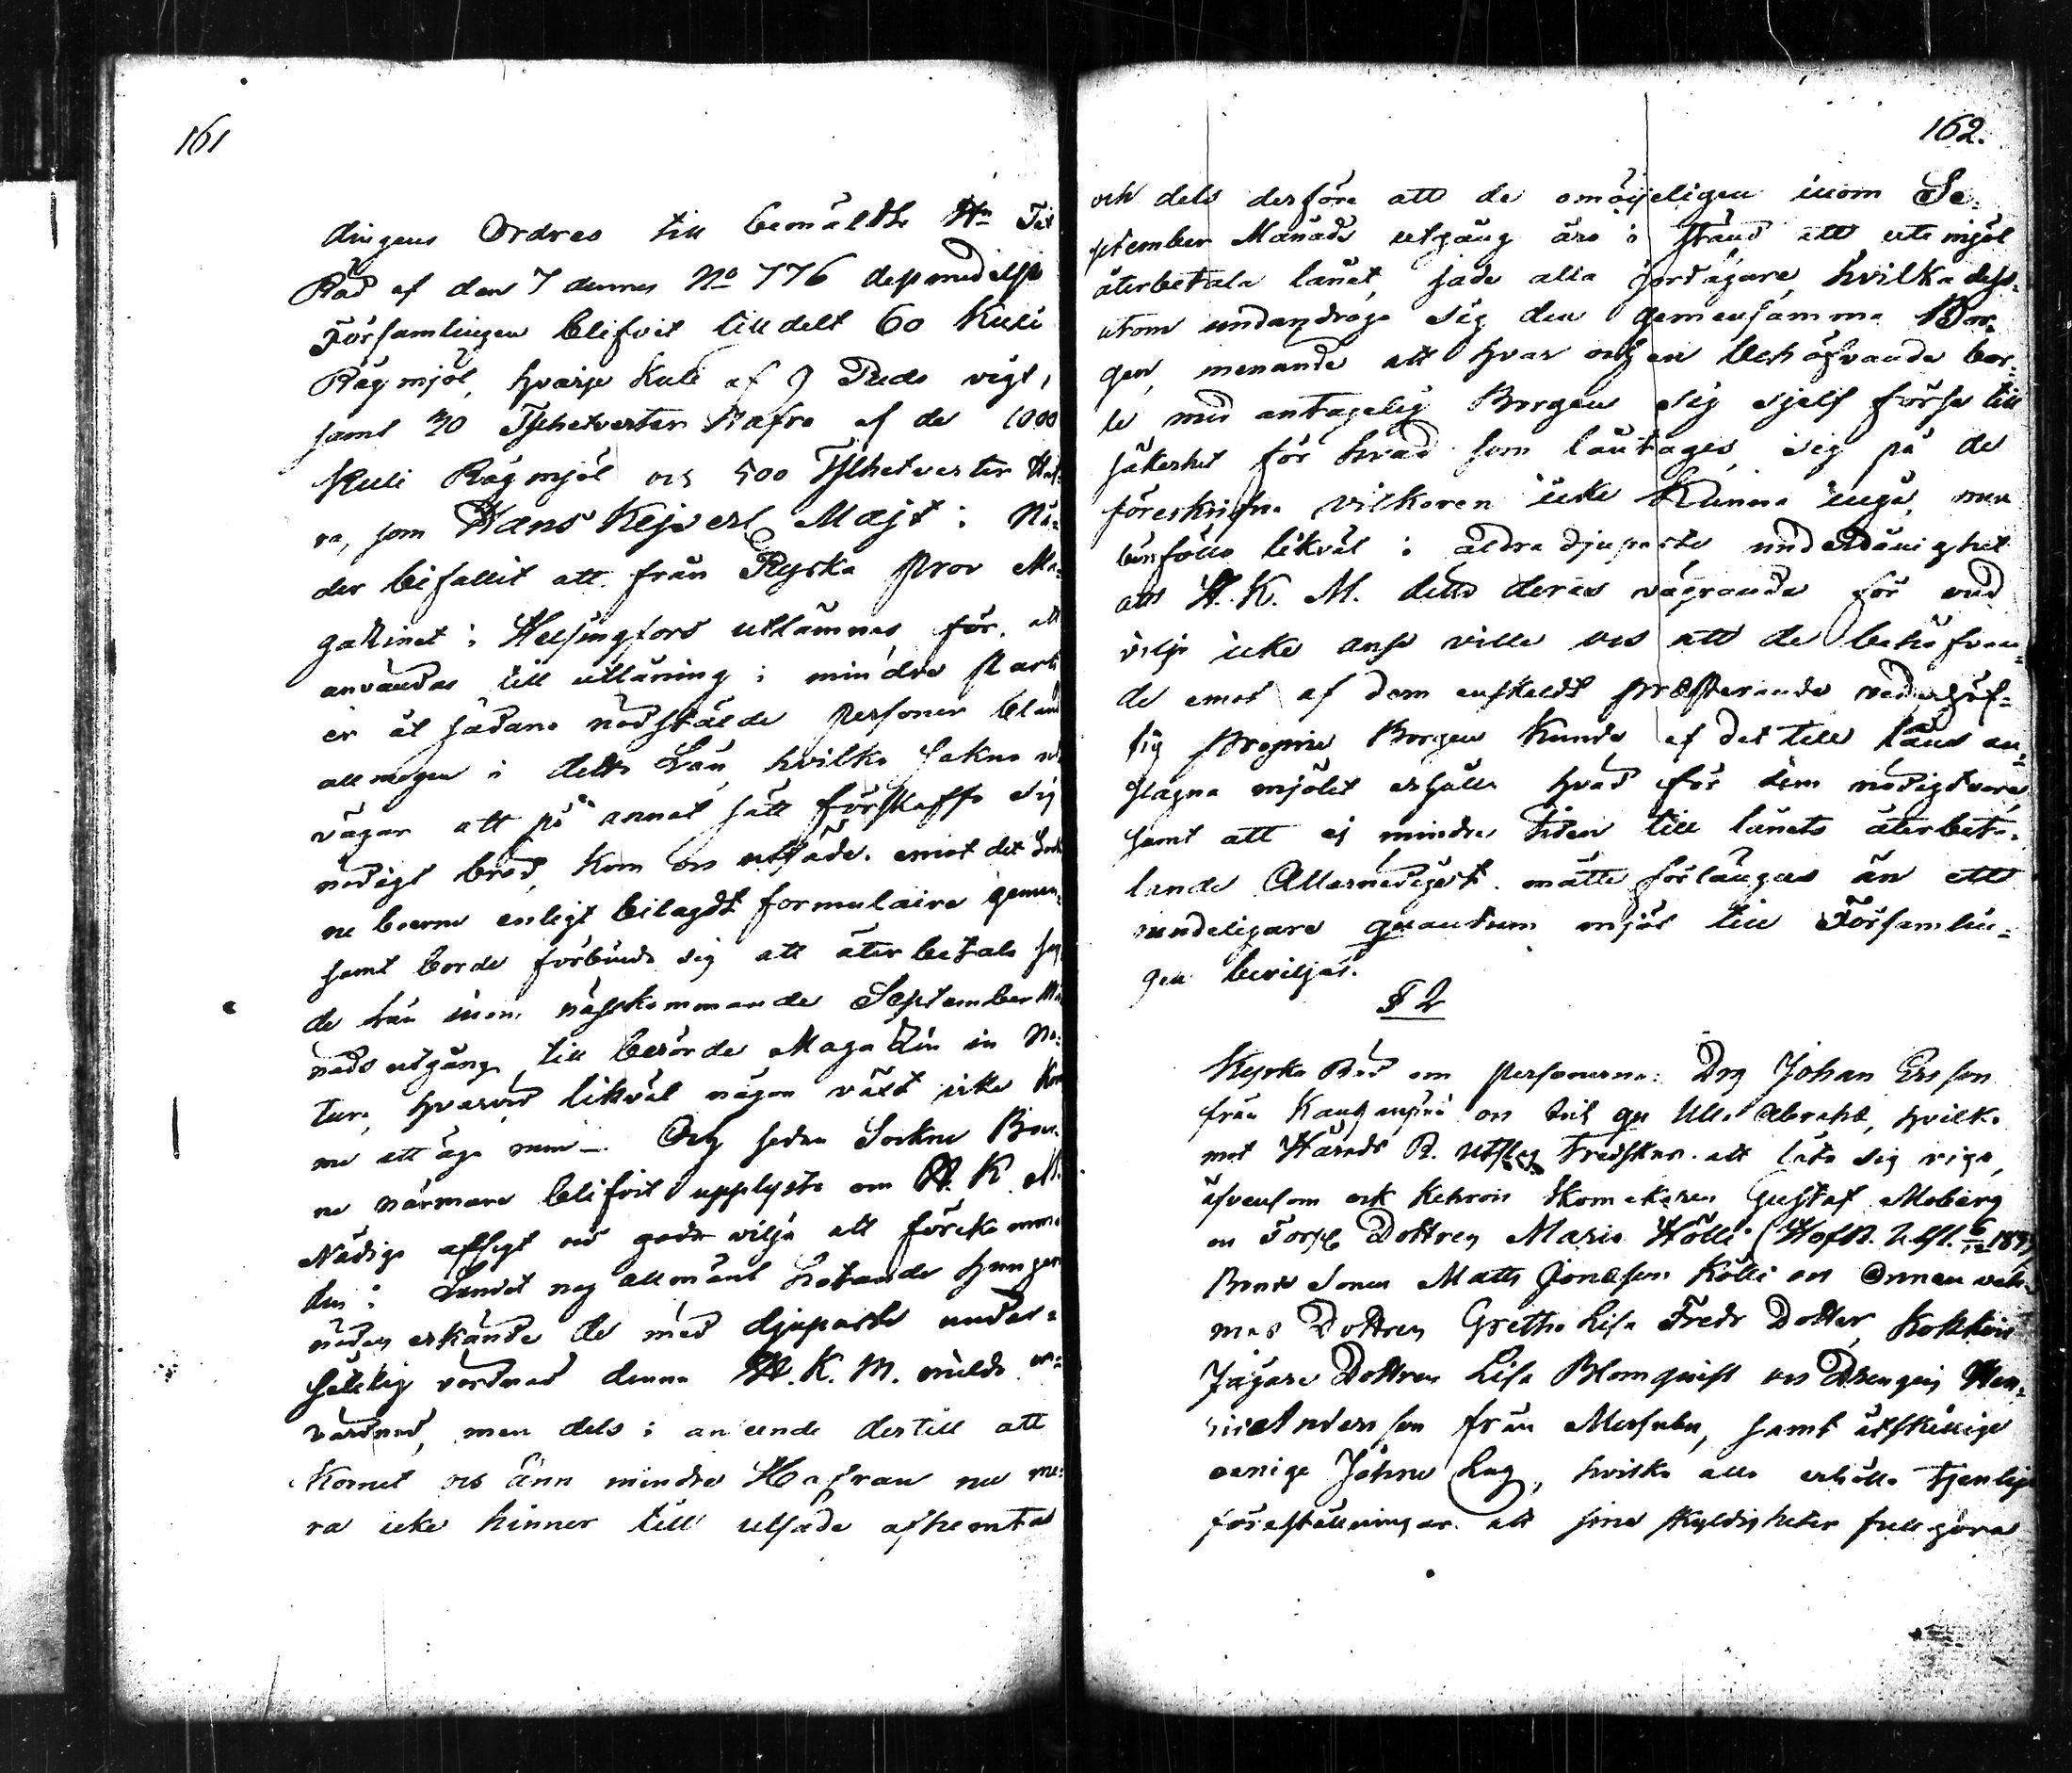 161
dingens Ordres till bemäldte Hn Tit
Råd af den 7 dennes No 776 dess medelst
Församlingen blifvit tilldelt 60 Kuli
Rågmjöl, hvarje Kuli af 9 Puds vigt,
samt 30 Tschetverter Hafra af de 1000
Kuli Rågmjöl och 500 Tschetverter Haf-
ra, som Hans Kejserl Majt i Nå-
der bifallit att från Ryska Prov Ma-
gazinet i Helsingfors utlämnas för att
användas till utlåning i mindre Parti
er åt sådane nödstälde personer bland
allmogen i detta Län, hvilka sakna
vägar att på annat sätt förskaffa sig
nödigt bröd, korn och utsäde, emot det Sock
ne boerne enligt bilagdt formulaire gemen
samt borde förbinda sig att återbetala
de lån inom nästkommande September Må
nads utgång till berörde Magazin in Na-
tura, hvarvid likväl någon växt icke
me att äga rum. Och sedan Sockne Bon-
ne närmare blifvit upplyste om H. K. M.
Nådiga afsigt och goda vilja att förekomma
den i Landet nog allmänt hotande hunger
nöden erkände de med djupaste under-
såtelig vördnad denna H. K. M. milda
vårdnad, men dels i anseende dertill att
Kornet och änn mindre Hafran nu me-
ra icke hinner till utsäde afhemtas
162.
och dels derföre att de omöjeligen inom Se-
ptember Månads utgång äro i stånd att ute mjöl
återbetala lånet, sade alla jordägare, hvilka dess-
utom undandrogo sig den gemensamma Bor-
gen, menande att hvar och en behöfvande bor-
de med antagelig Borgen sig sjelf förse till
säkerhet för hvad som låntages, sig på de
föreskrifna vilkoren icke kunna ingå, men
bönföllo likväl i aldra djupaste underdånighet
att H. K. M. detta deras vägrande för ond
vilje icke anse ville och att de behöfvan-
de emot af dem enskeldt præsterande vederhäf-
tig Proprie Borgen kunde af det till låns an-
slagna mjölet erhålla hvad för dem nödigt vore,
samt att ej mindre tiden till lånets återbeta-
lande Allernådigast måtte förlängas än ett
mindeligare quantum mjöl till Församlin-
gen beviljas.
§ 2
Kyrko Råd om personerne: Drg Johan Ersson
från och Ulla Abrahd, hvilka
mot Härads R. Utslag tredskas att låta sig viga,
äfvensom och Skomakaren Gustaf Moberg
och Torp Dottren Maria Hölli (HofR. Utsl. 6/12 18
Bonde Sonen Matts Jonasson Kölli och
mas Dottren Gretha Lisa Fredr Dotter, Kokkois
Jägare Dottren Lisa Blomqvist och Drengen Hen-
ric Andersson från, samt åtskillige
oenige Johne Lag, hvilka alla erhöllo tjenlige
föreställningar att sine skyldigheter fullgöra